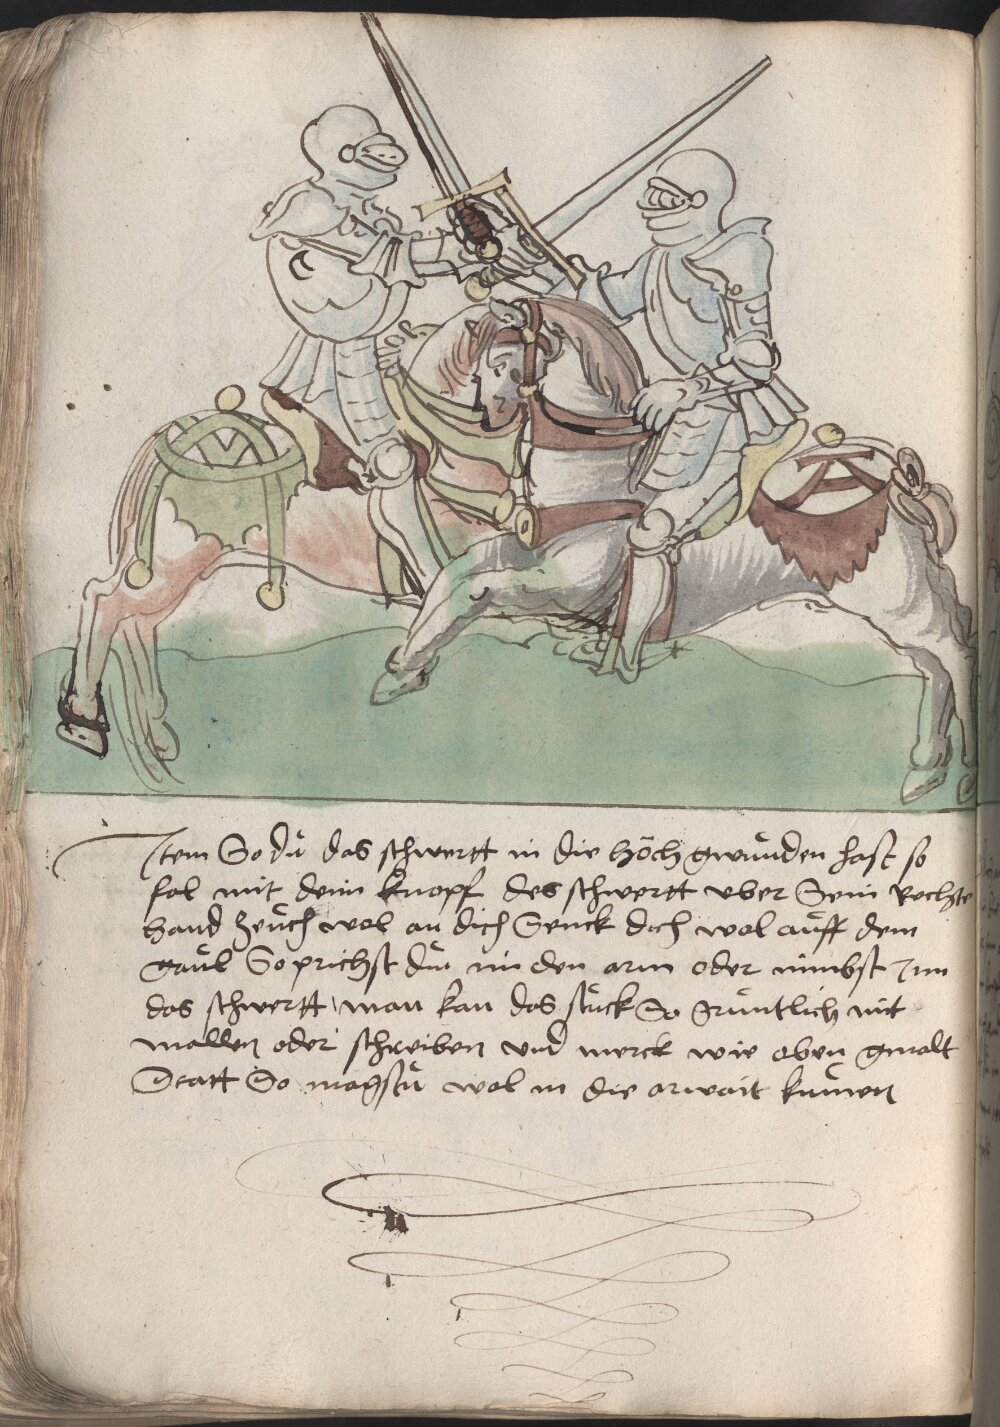 Item So du das schwertt in die höch gwunden hast so
fal mit deim knopf des schwertt vber Sein Rechte
hand zeuch wol an dich Senck dich wol auff dem
gaul So prichst du im den arm oder nimbst Im
das schwertt man kan das stuck So gruntlich nit
mallen oder schreiben vnd merck wie oben gmalt
Statt So magstu wol in die arwait kumen